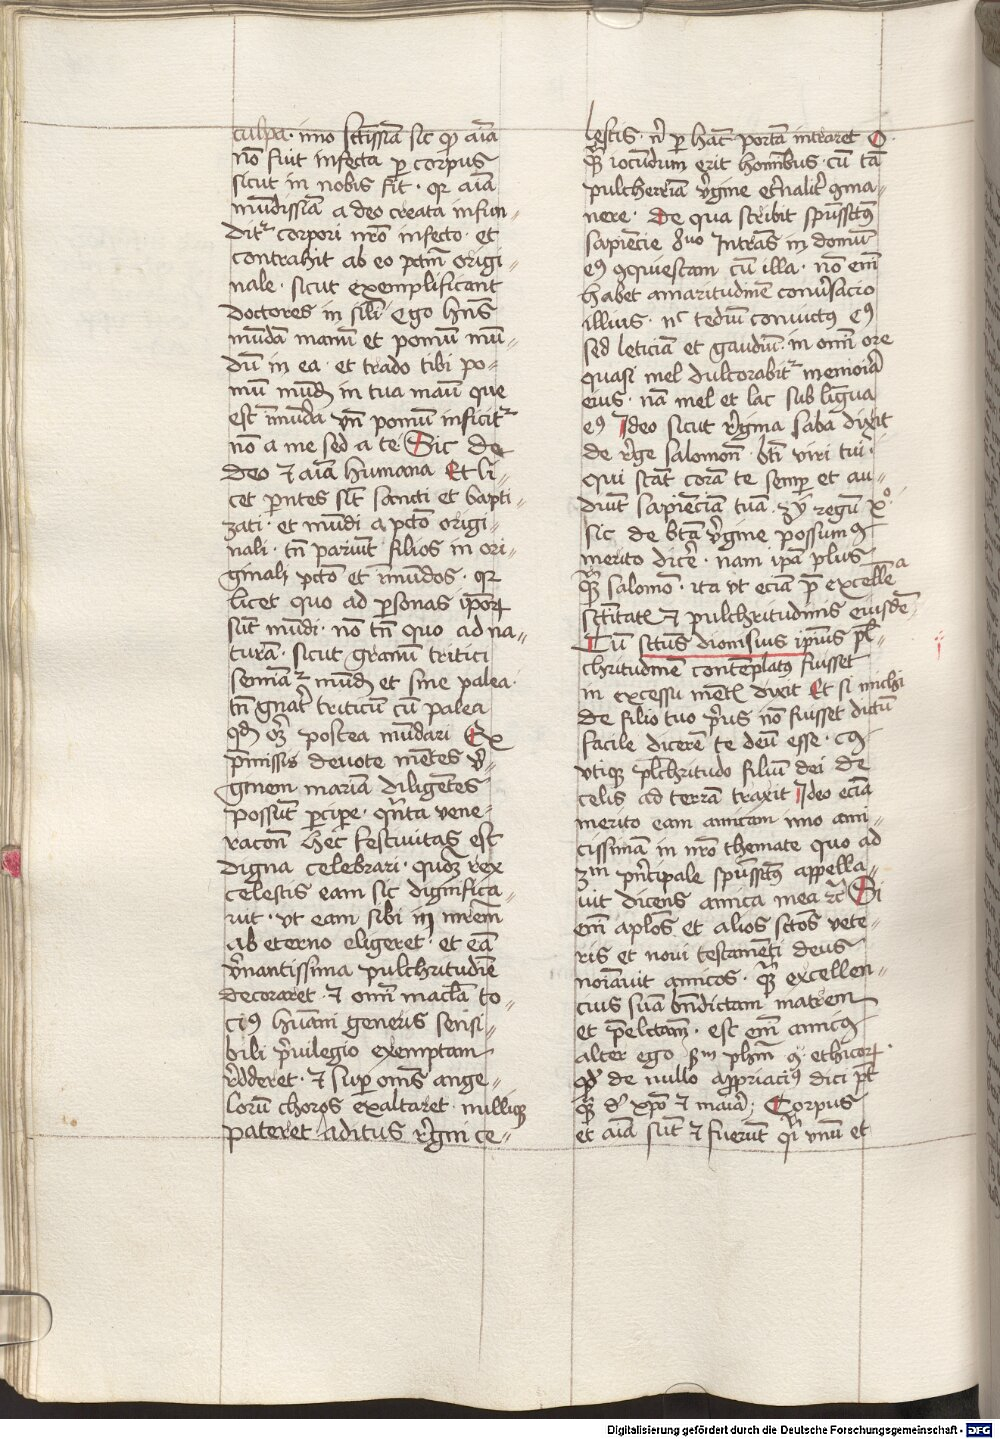 culpa · imo sctīssīa sic qꝫ aīa
nō fuit infecta ꝑ corpus
sicut in nobis fit · qꝛ aīa
mūdissīa a deo creata infun-
ditᷣ corpori nr̄o infecto · et
contrahit ab eo pctm̄ origi-
nale · sicut exemplificant
doctores in sil̄i Ego hn̄s
mūdā manū et pomū mū-
dū in ea · et trado tibi po-
mū mūdū in tua manū que
est īmūda vn̄ pomū inficitᷣ
nō a me sed a te · Sic de
deo ⁊ aīa humana Et li-
cet pēntes sīt sancti et bapti-
zati · et mūdi a pctō origi-
nali · tn̄ pariūt filios in ori-
ginali pctō et īmūdos · qꝛ
licet quo ad ꝑsonas ip̄oꝝ
sūt mūdi · nō tn̄ quo ad na-
turā · sicut granū tritici
semīatᷣ mūdū et sine palea ·
tn̄ gn̄at triticū cū palea
qd̄ oꝫ postea mūdari Ex
p̄missis deuote mētes v̓-
ginem mariā diligētes
possūt ꝑcipe · qn̄ta vene-
racōn hec festiuitas est
digna celebrari · quōꝫ rex
celestis eam sic dignifica-
uit · vt eam sibi in mr̄em
ab eterno eligeret · et eā
v̓nantissima pulchritudīe
decoraret · ⁊ om̄i macl̄a to-
ciꝯ humani generis sensi-
bili p̓uilegio exemptam
r̓dderet · ⁊ super om̄s ange-
lorū choros exaltaret · nulliqꝫ
pateret aditus r̓gni ce-
lestis · nˡ ꝑ hāc portā intraret O ·
qͣꝫ iocūdum erit hom̄ibus · cū tā
pulcherrīa v̓gine et̓nalit̓ ꝯma-
nere · De qua scribit spūssctūs
sapiēcie 8uo Intrās in domū
eꝯ ꝯquiescam cū illa · nō em̄
habet amaritudinē conūsacio
illius · nᶜ tediū conuictꝯ eꝯ
sed leticiam et gaudiū · in om̄i ore
quasi mel dulcorabitᷣ memoīa
eius · nā mel et lac sub ligua
eꝯ Ideo sicut r̓gina saba dixit
de r̓ge salomon̄ · bt̄i viri tui ·
qui stāt corā te semꝑ et au-
diūt sapiēciā tuā · 3ͥͥ regū xº ·
sic de btā v̓gine possumꝯ
merito dicē · nam ip̄a plus
qͣꝫ salomō · ita vt eciā p̄ excell̄ēᵃ
sctītatꝭ ⁊ pulchritudinis eiusdē
Cū sctūs dionisius ip̄ius pl̄-
chritudinē contēplatꝯ fuisset
in excessu mētꝭ dixit Et si michi
de filio tuo p̓us nō fuisset dictū
facile dicerē te deū esse · cꝯ
vtiqꝫ pl̄chritudo filiū dei de
celis ad terrā traxit Ideo eciā
merito eam amicam imo ami-
cissimā in nr̄o themate quo ad
3m pn̓cipale spūssctūs appella-
uit dicens amica mea ⁊c̄ Si
em̄ aplōs et alios sctōs vete-
ris et noui testamēti deus
noīauit amicos · qͣꝫ excellen-
cius suā bn̄dictam matrem
et p̄elctam · est em̄ amicꝯ
alter ego 3m phm̄ 9 · ethicoꝝ ·
qd̄ de nullo appriaciꝯ dici pt̄
qͣꝫ d̓ xp̄o ⁊ maīa · Corpus
et aīa sūt ⁊ fuerūt qͣi vnū et
Digitalisierung gefördert durch die Deutsche Forschungsgemeinschaft - DFG